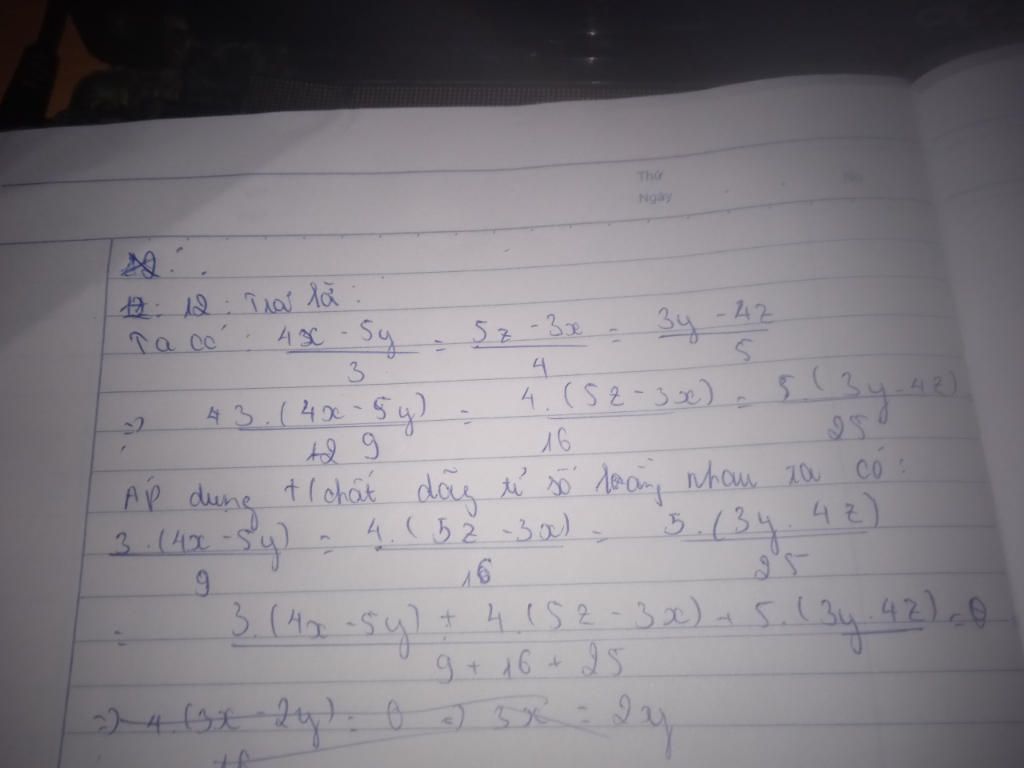 Thứ
Ngày
No
12: 12: Trả lời:
Ta có: 4x - 5y / 3 = 5z - 3x / 4 = 3y - 4z / 5
=> 4 3.(4x - 5y) / 12 9 = 4.(5z - 3x) / 16 = 5.(3y - 4z) / 25
Áp dụng t/chất dãy tỉ số bằng nhau ta có:
3.(4x - 5y) / 9 = 4.(5z - 3x) / 16 = 5.(3y - 4z) / 25
= 3.(4x - 5y) + 4.(5z - 3x) + 5.(3y - 4z) / 9 + 16 + 25 = 0
=> 4.(3x - 2y) = 0 => 3x = 2y